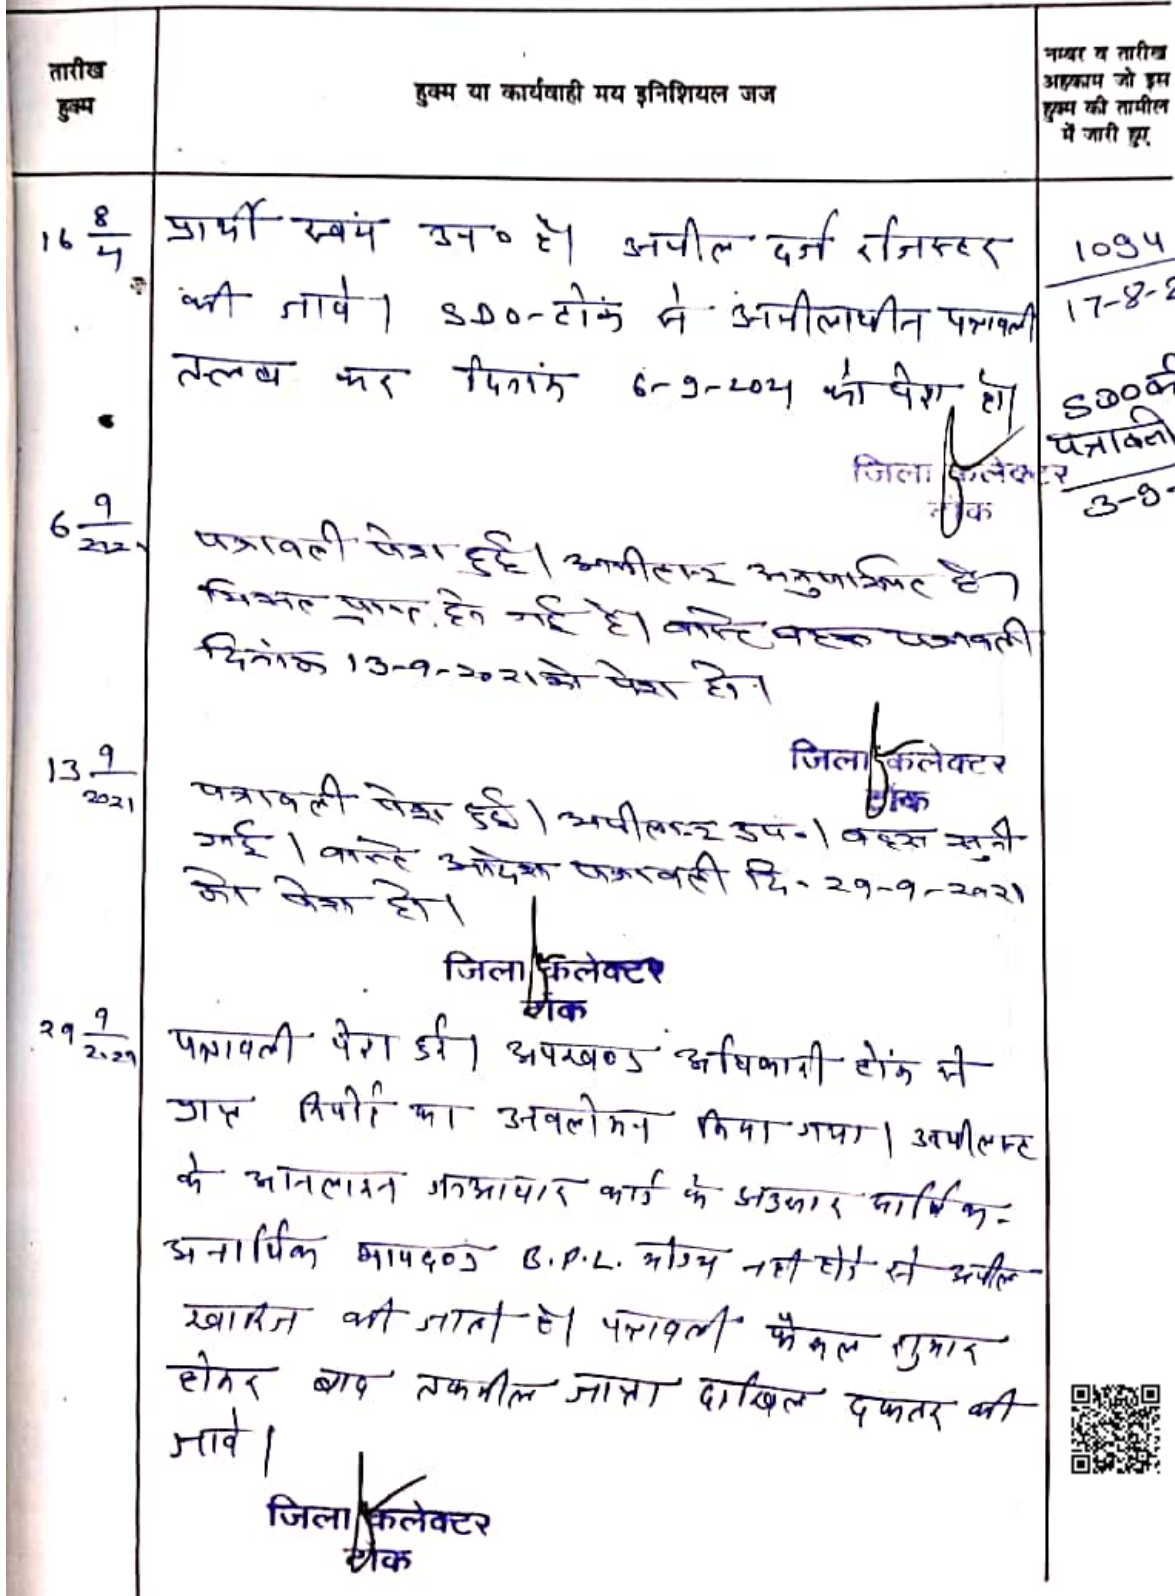 तारीख
हुक्म
हुक्म या कार्यवाही मय इनिशियल जज
नम्बर व तारीख
अहकाम जो इस
हुक्म की तामील
में जारी हुए
16 8/
प्रार्थी स्वयं उप० है। अपील दर्ज रजिस्टर
की जावे। SDO-टोंक से अपीलाधीन पत्रावली
तलब कर दिनांक 6-9-2021 को पेश हो।
जिला कलेक्टर
टोंक
1094
17-8-2
SDO
पत्रावली
3-9-
6 9/2021
पत्रावली पेश हुई। अपीलान्ट अनुपस्थित है।
मिसल प्राप्त हो गई है। वास्ते बहस पत्रावली
दिनांक 13-9-2021 को पेश हो।
जिला कलेक्टर
टोंक
13 9/2021
पत्रावली पेश हुई। अपीलान्ट उप०। बहस सुनी
गई। वास्ते आदेश पत्रावली दि. 29-9-2021
को पेश हो।
जिला कलेक्टर
टोंक
29 9/2021
पत्रावली पेश हुई। उपखण्ड अधिकारी टोंक से
प्राप्त रिपोर्ट का अवलोकन किया गया। अपीलान्ट
के ऑनलाइन जनआधार कार्ड के अनुसार आर्थिक-
अनार्थिक मापदण्ड B.P.L. योग्य नहीं होने से अपील
खारिज की जाती है। पत्रावली फैसल शुमार
होकर बाद तकमील जाप्ता दाखिल दफ्तर की
जावे।
जिला कलेक्टर
टोंक